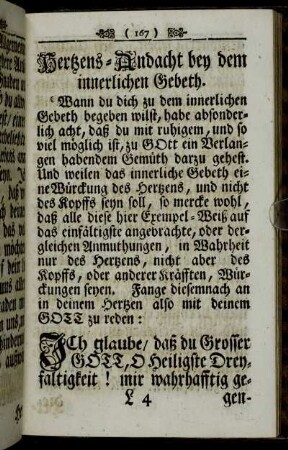 ( 167 )
Hertzens-Andacht bey dem
innerlichen Gebeth.
Wann du dich zu dem innerlichen
Gebeth begeben wilst, habe absonder-
lich acht, daß du mit ruhigem, und so
viel möglich ist, zu GOtt ein Verlan-
gen habendem Gemüth darzu gehest.
Und weilen das innerliche Gebeth ei-
ne Würckung des Hertzens, und nicht
des Kopffs seyn soll, so mercke wohl,
daß alle diese hier Exempel-Weiß auf
das einfältigste angebrachte, oder der-
gleichen Anmuthungen, in Wahrheit
nur des Hertzens, nicht aber des
Kopffs, oder anderer Kräfften, Wür-
ckungen seyen. Fange diesemnach an
in deinem Hertzen also mit deinem
GOTT zu reden:
ICh glaube/ daß du Grosser
GOTT, O Heiligste Drey-
faltigkeit! mir wahrhafftig ge-
L 4 gen-